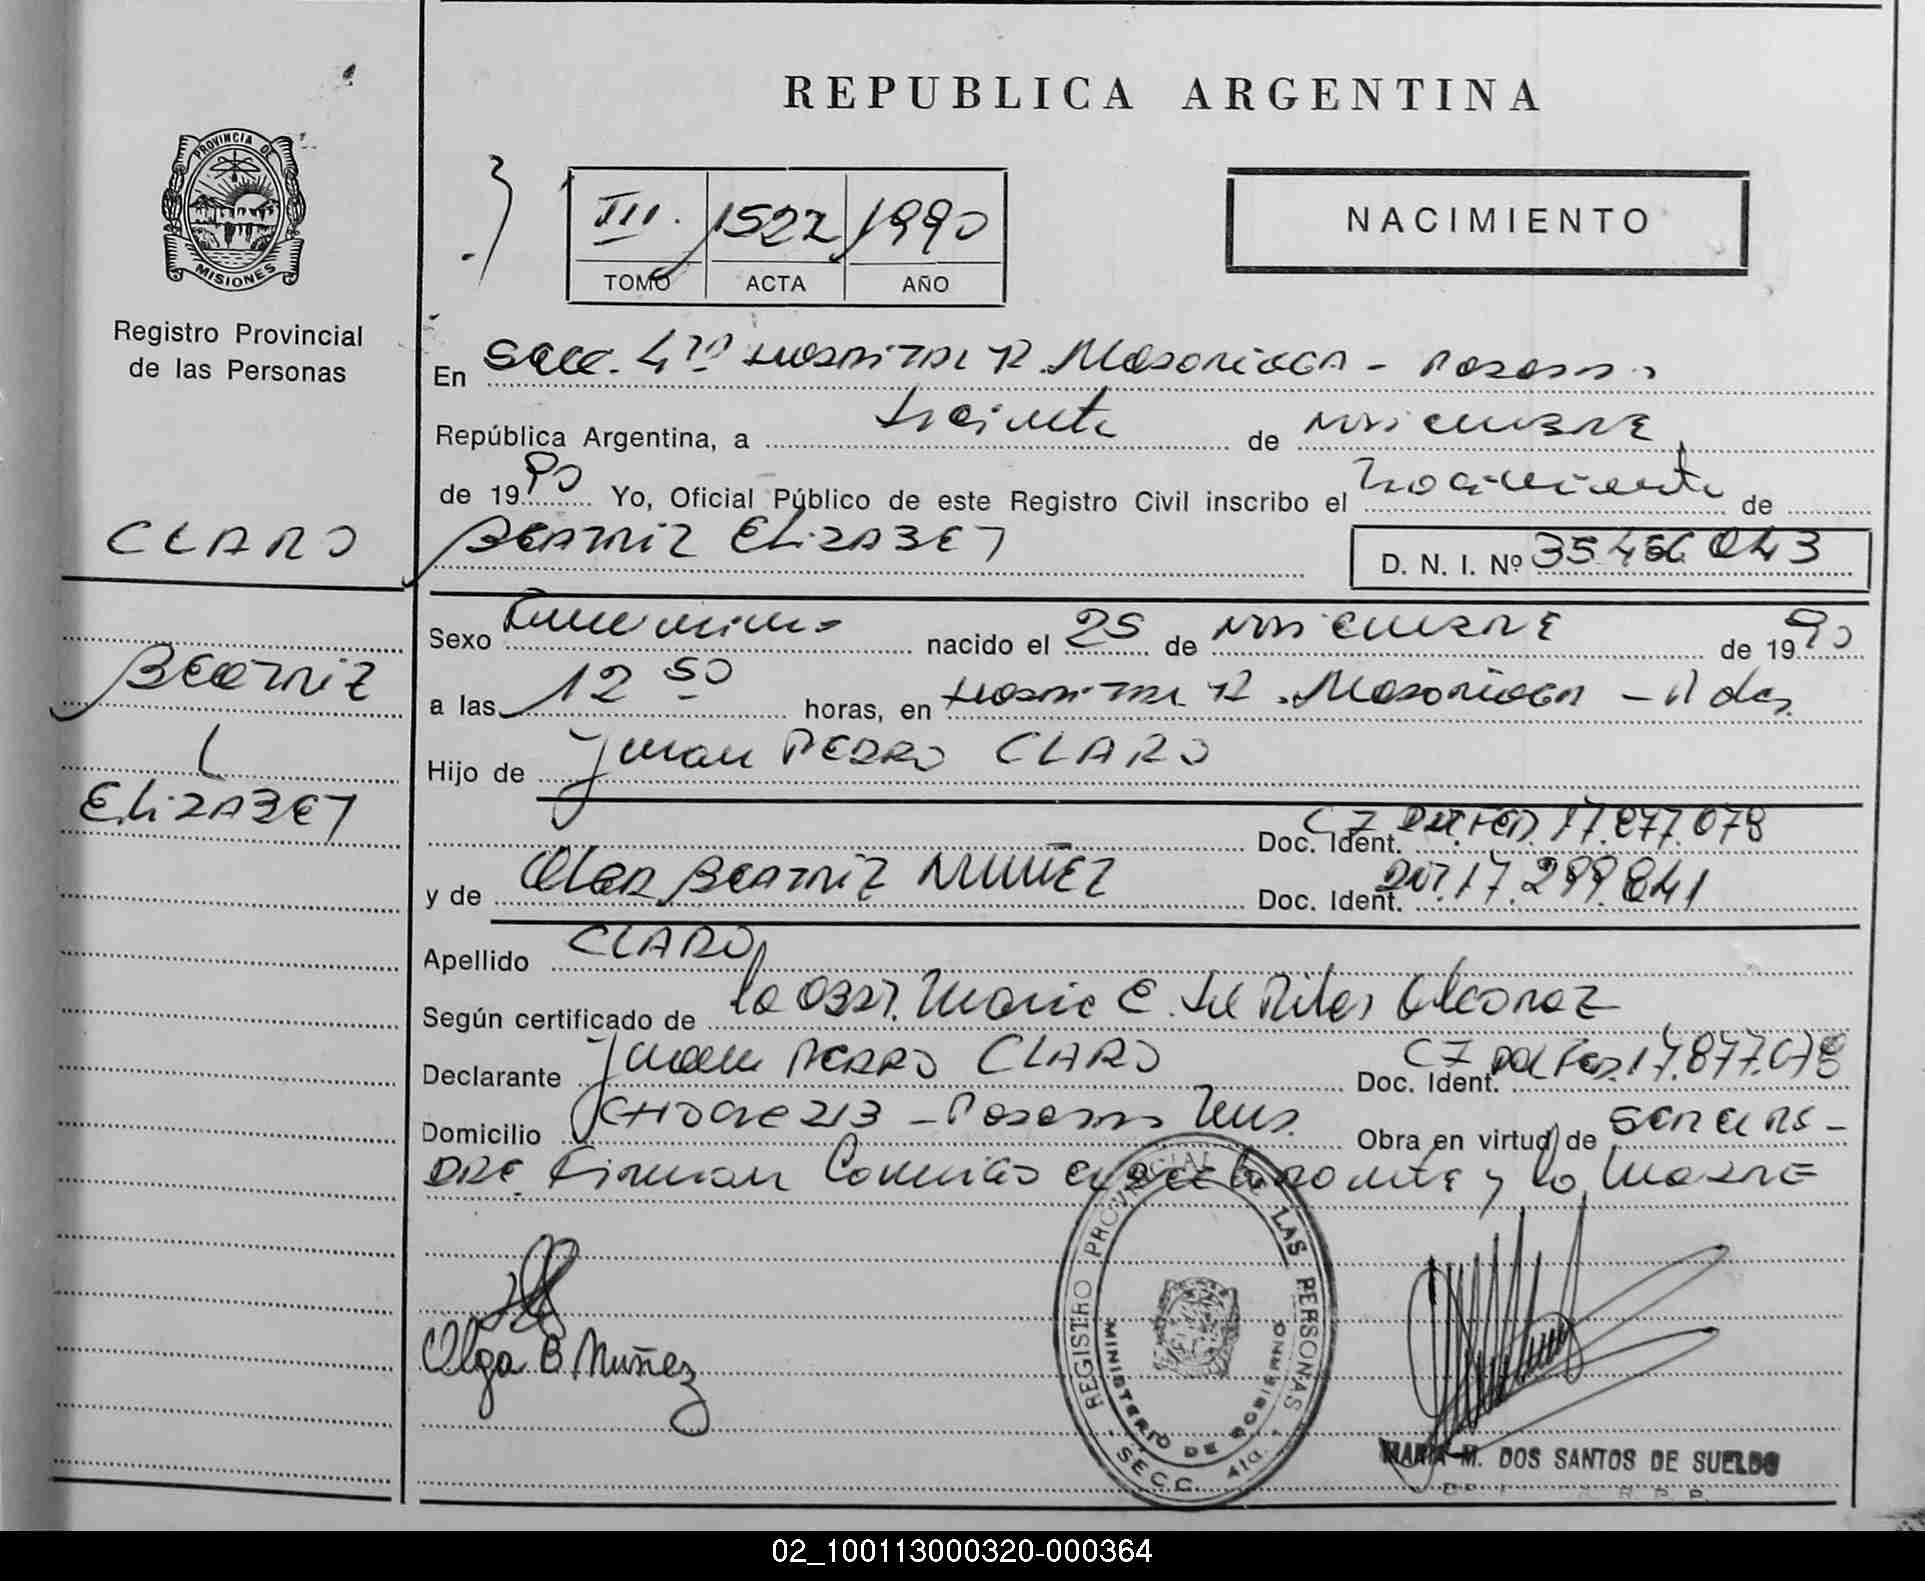 REPUBLICA ARGENTINA
PROVINCIA DE
MISIONES
Registro Provincial
de las Personas
III. 1522 1990
TOMO ACTA AÑO
NACIMIENTO
En Secc. 4ta Hospital R. Madariaga - Posadas
República Argentina, a treinta de noviembre
de 1990 Yo, Oficial Público de este Registro Civil inscribo el nacimiento de
CLARO
BEATRIZ ELIZABET
D. N. I. Nº 35.456.043
BEATRIZ
ELIZABET
Sexo Femenino nacido el 25 de noviembre de 1990
a las 12 50 horas, en Hospital R. Madariaga - Pdas.
Hijo de Juan PEDRO CLARO
Doc. Ident. 17.877.078
y de Olga BEATRIZ NUÑEZ Doc. Ident. DNI. 17.299.841
Apellido CLARO
Según certificado de la OBST. Maria E. del Pilar Alcaraz
Declarante Juan PEDRO CLARO Doc. Ident. CI Pol Fed. 17.877.078
Domicilio 213 - Posadas Mnes. Obra en virtud de SER EL PA-
DRE. Firman Conmigo el declarante y la MADRE
Olga B. Nuñez
REGISTRO PROVINCIAL DE LAS PERSONAS
MINISTERIO DE GOBIERNO
SECC. 4ta.
MARIA M. DOS SANTOS DE SUELDO
02_100113000320-000364